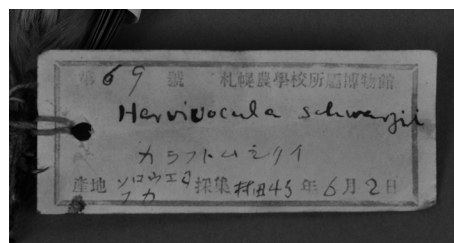 第69號 札幌農學校所屬博物館
Harvivocula schwarzii
カラフトムシクイ
産地 ソロウエヨフカ 採集 村田45年6月2日